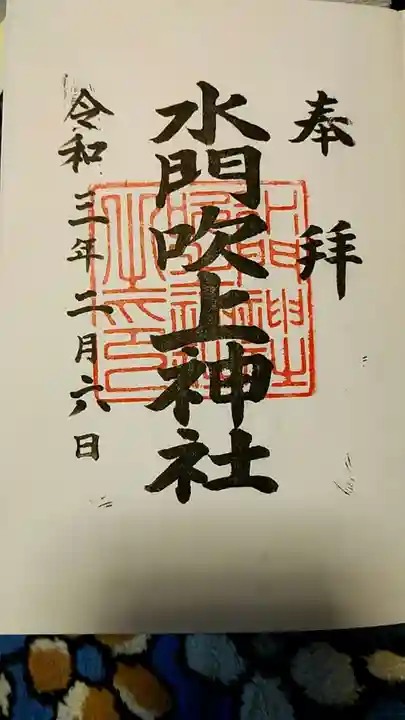 奉拝
水門吹上神社
令和三年二月六日